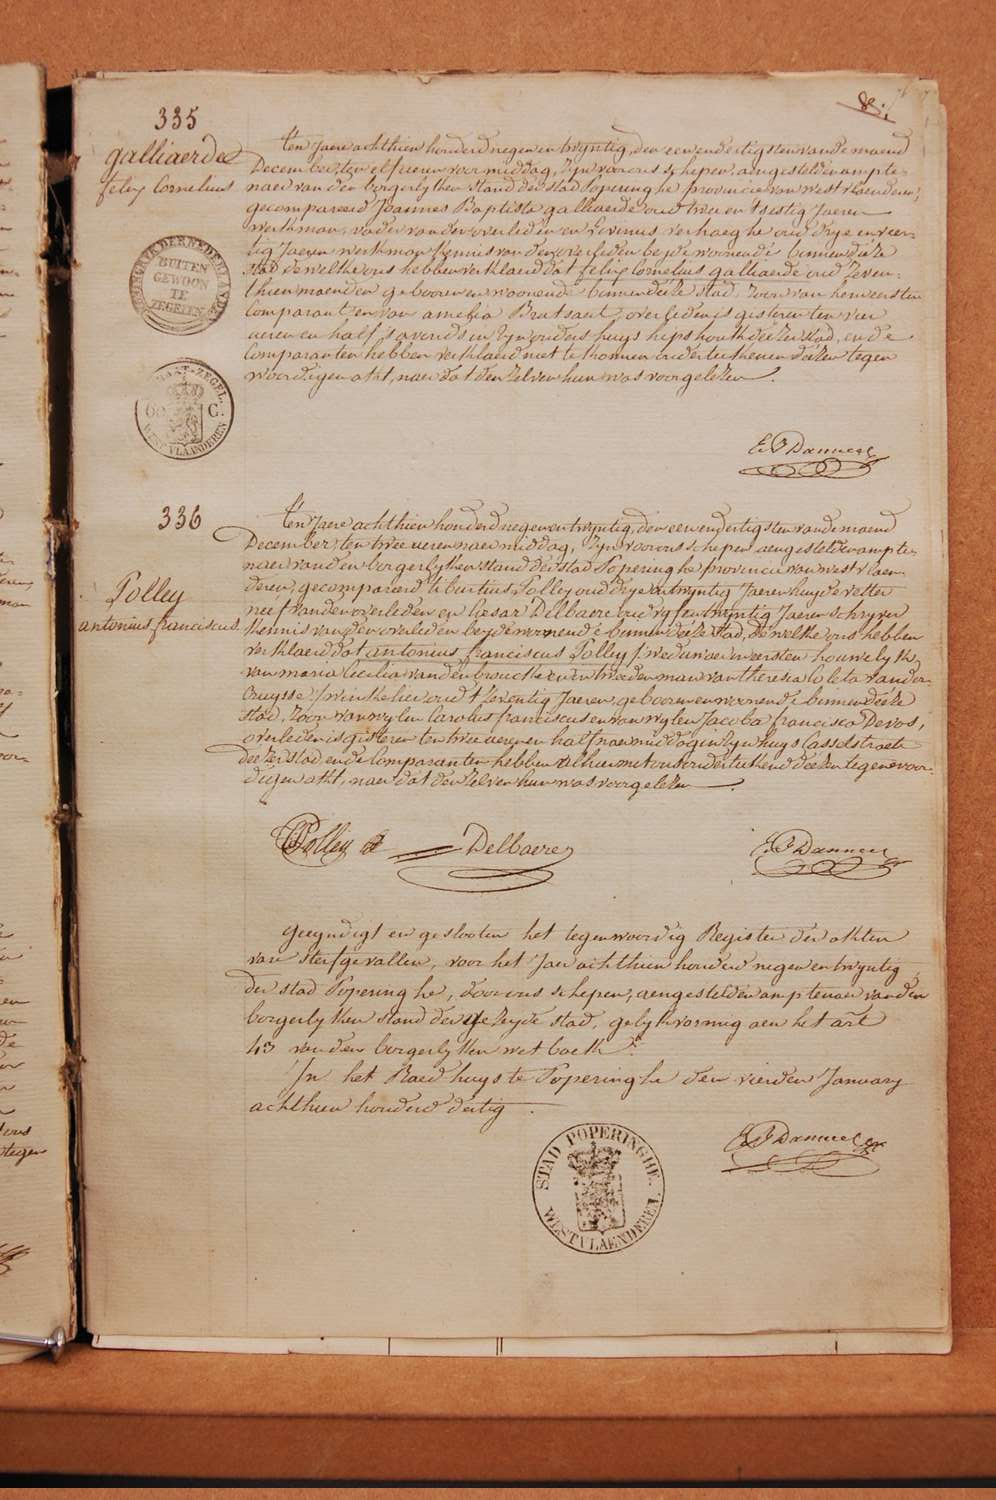 335
galliaerde
felix Cornelius
Ten Jaere achthien honderd negen en twyntig, den een en dertigsten van de maend
December, ten elf ueren voor middag, Zyn voor ons schepen, aengestelden ampte-
naer van den borgerlyken stand der stad Poperinghe provincie van west vlaenderen,
gecompareerd Joannes Baptista galliaerde oud twee en tsestig Jaeren
werkman, vader van den overleden en Livinus verhaeghe oud drye en veer-
tig Jaeren werkman kennis van den overleden beyde woonende binnen deéze
stad, de welke ons hebben verklaerd dat felix Cornelius galliaerde oud zeven-
thien maenden geboren en woonende binnen deéze stad, Zoon van den eersten
Comparant, en van amelia Brutsaert, overleden is gisteren ten vier
ueren en half s'avonds in Zyn ouders huys hipshoek deézer stad, en de
Comparanten hebben verklaerd niet te konnen onderteekenen deézen tegen
woordigen akt, naer dat den Zelven hun was voorgelezen.
BUITEN
GEWOON
TE
ZEGELEN
60 C.
WEST-VLAANDEREN
336
Polley
antonius franciscus
Ten Jaere achthien honderd negen en twyntig, den een en dertigsten van de maend
December, ten twee ueren naer middag, Zyn voor ons schepen aengestelden ampte-
naer van den borgerlyken stand der stad Poperinghe provincie van west vlaen-
deren, gecompareerd tiburtius Polley oud drye en twyntig Jaeren huydevetter
neef van den overleden en Cæsar Delbaere oud vyf en twyntig Jaeren schryver
kennis van den overleden beyde woonende binnen deéze stad, de welke ons hebben
verklaerd dat antonius franciscus Polley / weduwaer in eersten houwelyk
van maria Cecilia vanden broucke en in tweeden man van theresia Coleta vander
Cruysse / winkelier oud t'zeventig Jaeren, geboren en woonende binnen deéze
stad, Zoon van wylen Carolus franciscus en van wylen Jacoba francisca Devos,
overleden is gisteren ten twee ueren en half naer middag in Zyn huys Casselstraete
deézer stad en de Comparanten hebben alhier met ons onderteekend deézen tegenwoor-
digen akt, naer dat den Zelven hun was voorgelezen
Polley
Delbaere
Geeyndigt en geslooten het tegenwoordig Register der akten
van sterfgevallen, voor het Jaer achthien honderd negen en twyntig,
der stad Poperinghe, door ons schepen, aengestelden amptenaer van den
borgerlyken stand der gezeyde stad, gelykvormig aen het art
43 van den borgerlyken wet boek.
In het Raedhuys te Poperinghe den vierden January
achthien honderd dertig.
STAD POPERINGHE.
WESTVLAENDEREN.